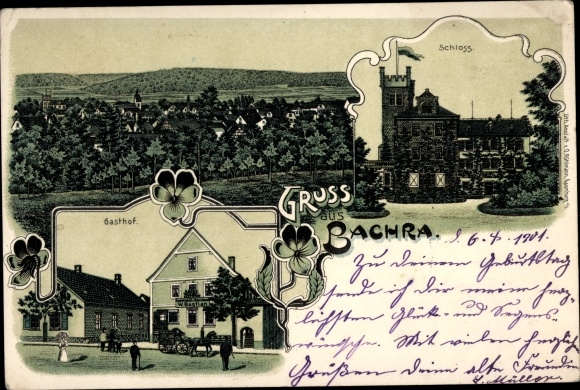 Schloss.
Gasthof.
GRUSS
aus
BACHRA.
d. 6. 4. 1901.
Zu deinem Geburtstag
sende ich dir meine herz-
lichsten Glück- und Segens-
wünsche. Mit vielen herzlich
Grüßen deine alte Freundin
L. Müller.